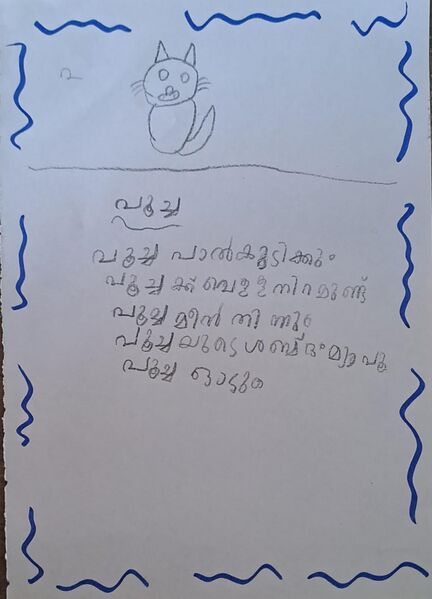 ൨
പൂച്ച
പൂച്ച പാൽകുടിക്കും
പൂച്ചക്ക് വെള്ളനിറമുണ്ട്
പൂച്ച മീൻ തിന്നും
പൂച്ചയുടെ ശബ്ദം മ്യാപൂ
പൂച്ച ഓടും